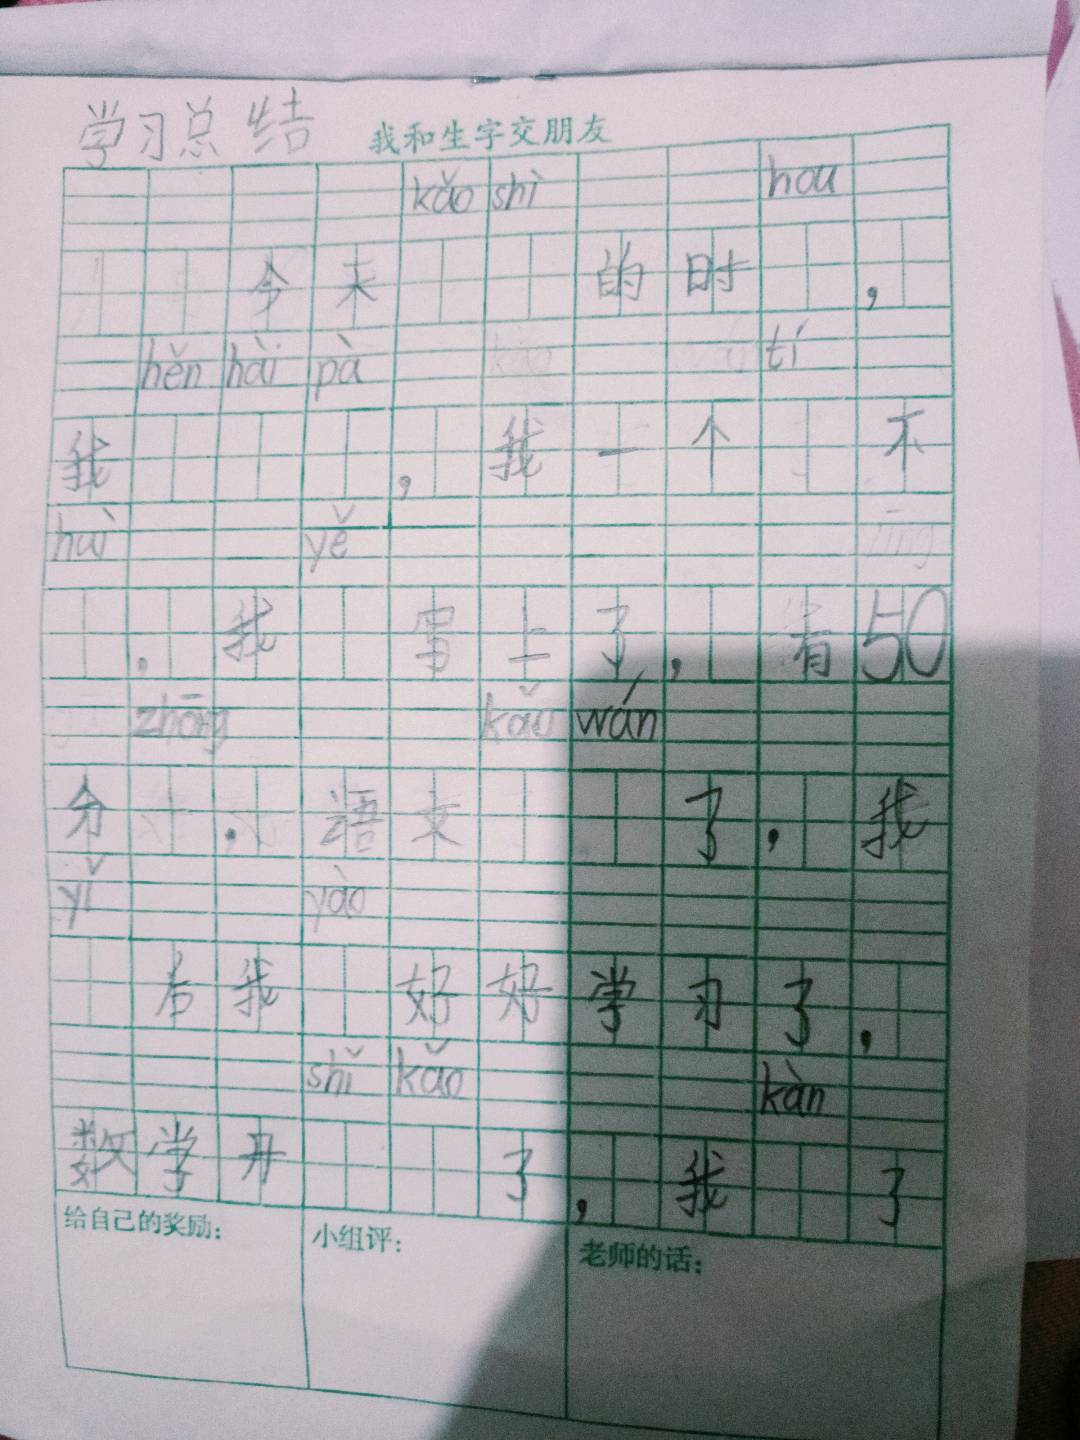 学习总结 我和生字交朋友
kǎo shì hou
今来 的时 ,
hěn hài pà tí
我 , 我一个 不
huì yě
。我 写上了, 有50
zhōng kǎo wán
分 . 语文 了. 我
yǐ yào
为我 好好学习了,
shǐ kǎo kàn
数学开 了, 我 了
给自己的奖励: 小组评: 老师的话: